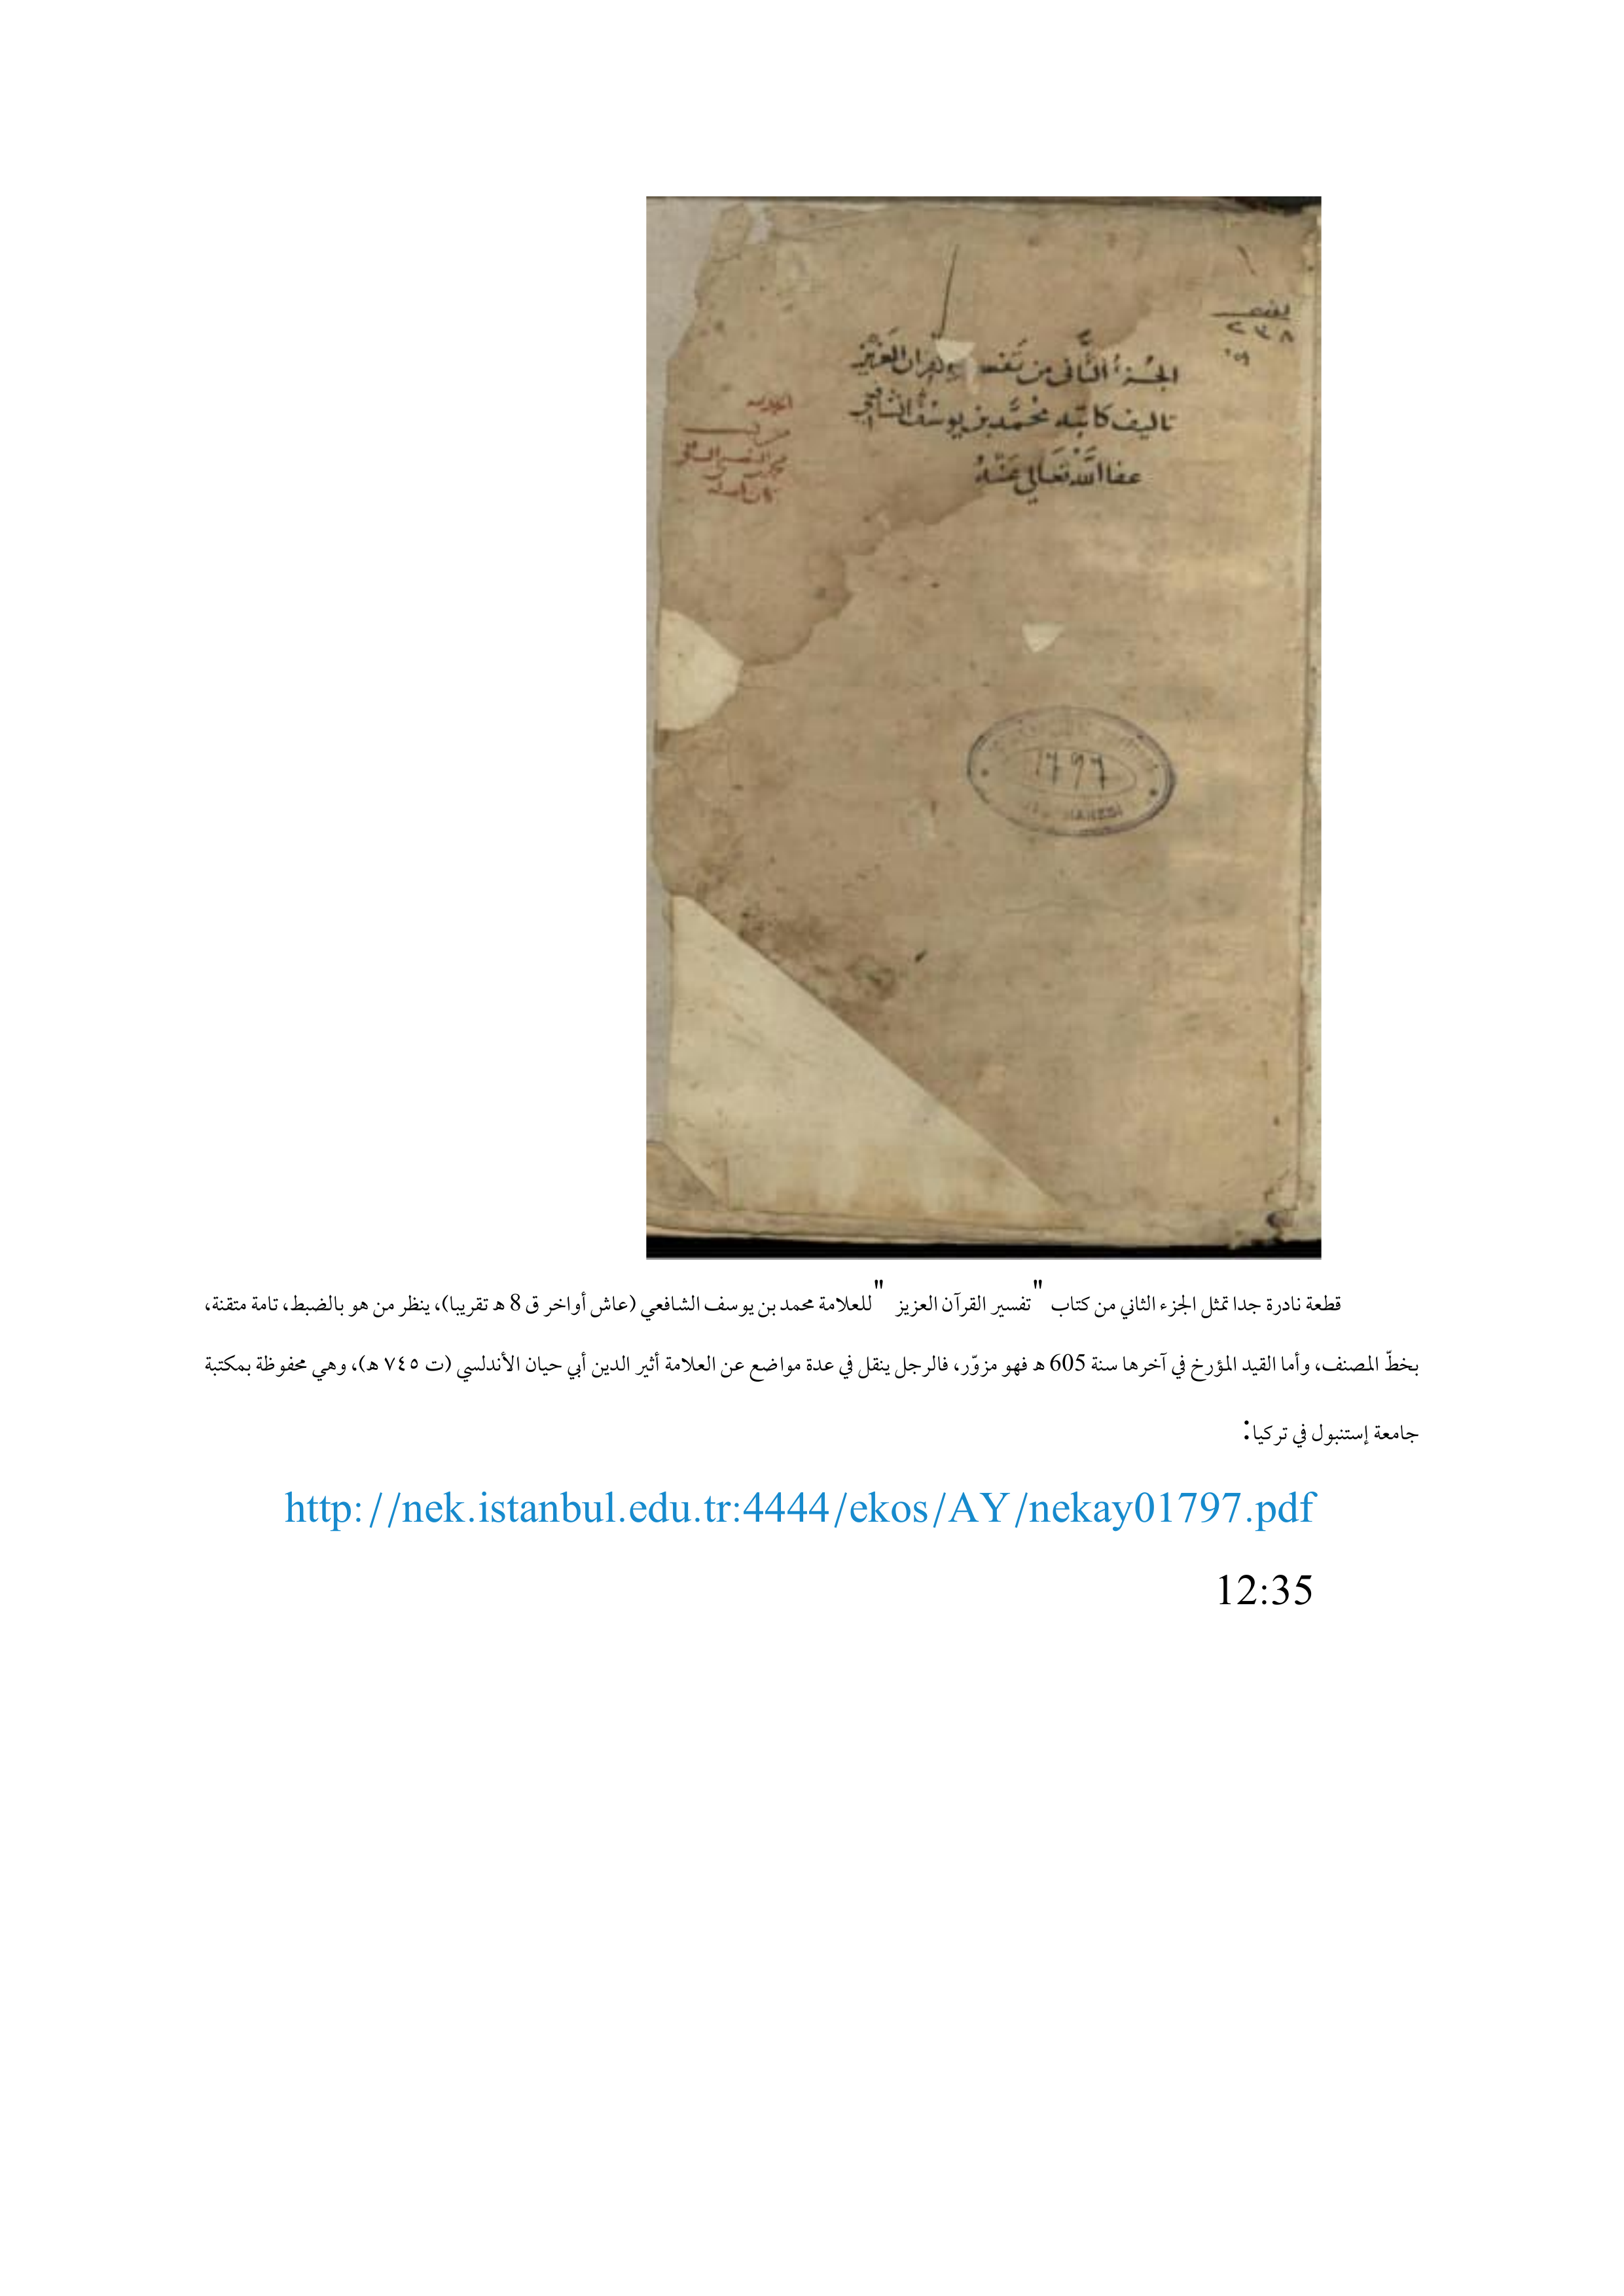 ٢٣٨
الجزء الثاني من تفسير القرآن العزيز
تاليف كاتبه محمد بن يوسف الشافعي
عفا الله تعالى عنه
1797
قطعة نادرة جدا تمثل الجزء الثاني من كتاب "تفسير القرآن العزيز "للعلامة محمد بن يوسف الشافعي (عاش أواخر ق 8 هـ تقريبا)، ينظر من هو بالضبط، تامة متقنة،
بخطّ المصنف، وأما القيد المؤرخ في آخرها سنة 605 هـ فهو مزوّر، فالرجل ينقل في عدة مواضع عن العلامة أثير الدين أبي حيان الأندلسي (ت ٧٤٥ هـ)، وهي محفوظة بمكتبة
جامعة إستنبول في تركيا:
http://nek.istanbul.edu.tr:4444/ekos/AY/nekay01797.pdf
12:35